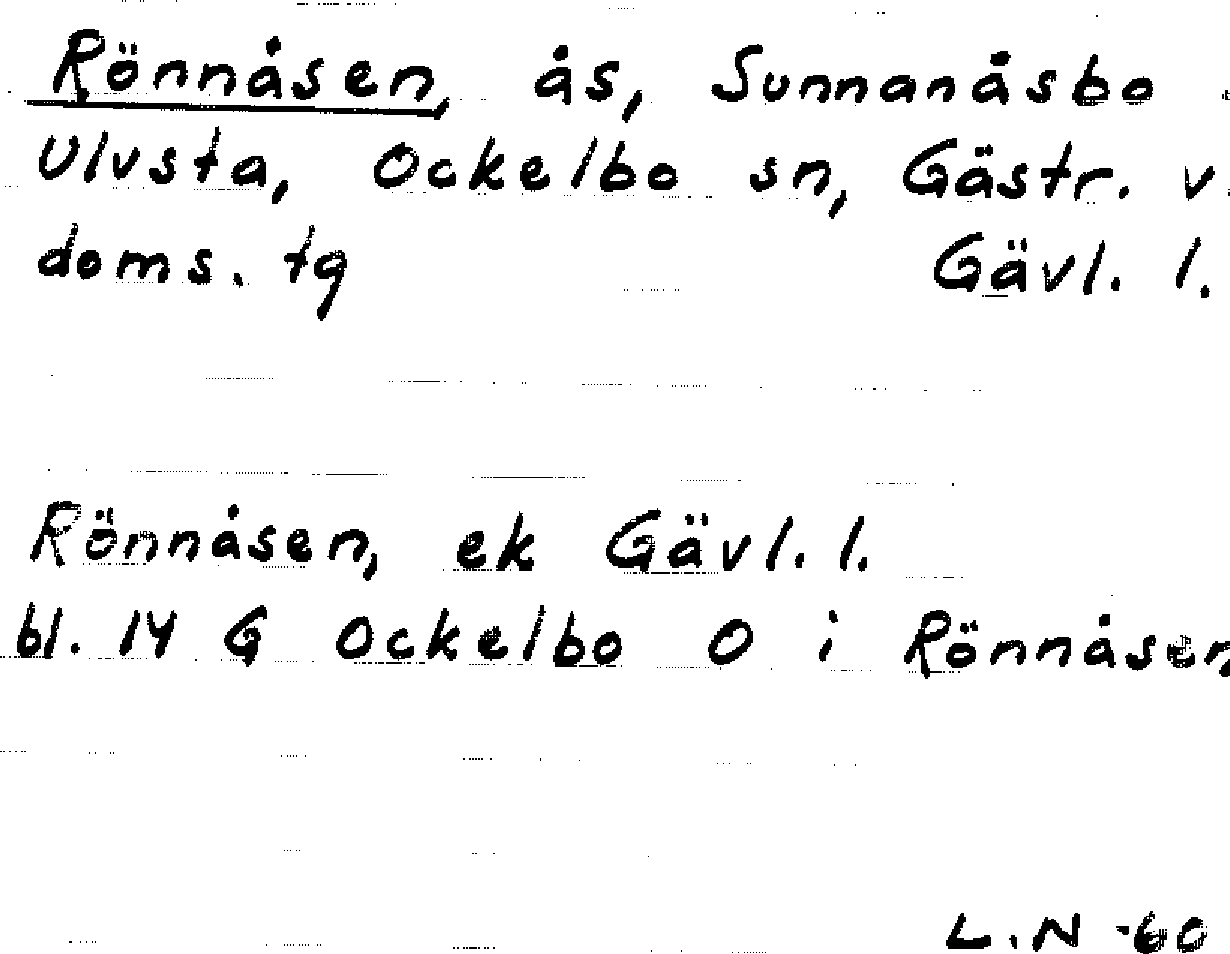 Rönnåsen, ås, Sunnanåsbo
Ulvsta, Ockelbo sn, Gästr. v.
doms. tg Gävl. l.
Rönnåsen, ek Gävl. l.
bl. 14 G Ockelbo O i Rönnåsen
L.N -60